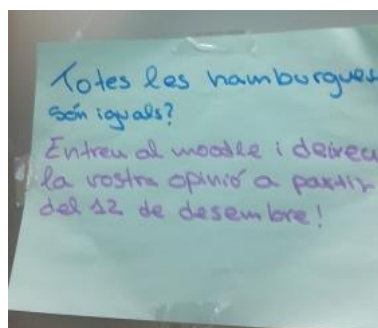 Totes les hamburgues
són iguals?
Entreu al moodle i deixeu
la vostra opinió a partir
del 12 de desembre!